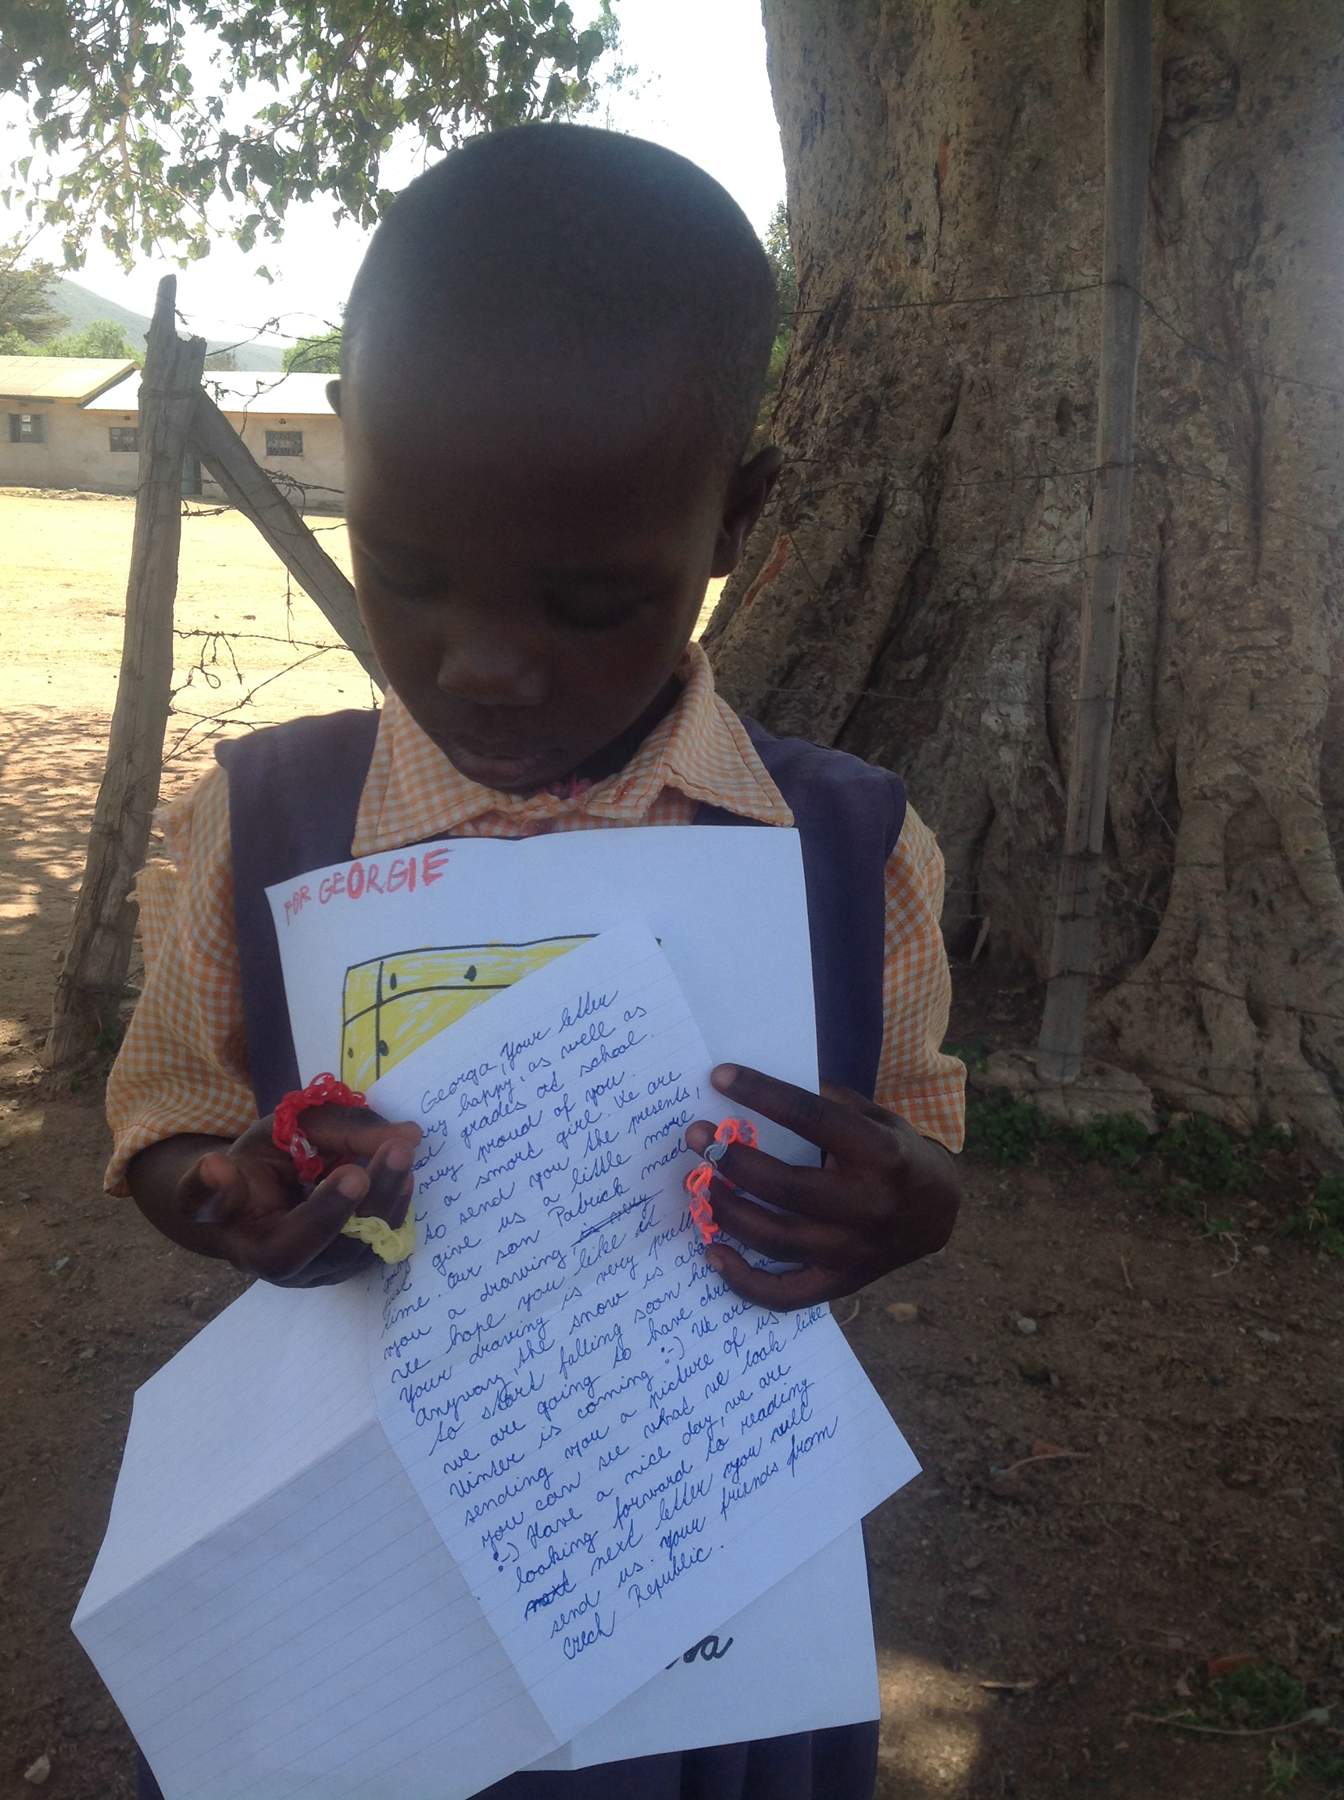 FOR GEORGIE
Georga, Your letter
happy, as well as
grades at school.
very proud of you.
a smart girl. We are
to send you the presents,
give us a little more
time. Our son Patrick made
you a drawing,
We hope you like it
Your drawing is very
Anyway, the snow is
to start falling soon
we are going to have
Winter is coming :-) We are
sending you a picture of us
you can see what we look like
:-) Have a nice day, we are
looking forward to reading
next next letter you will
send us. Your friends from
Czech Republic.